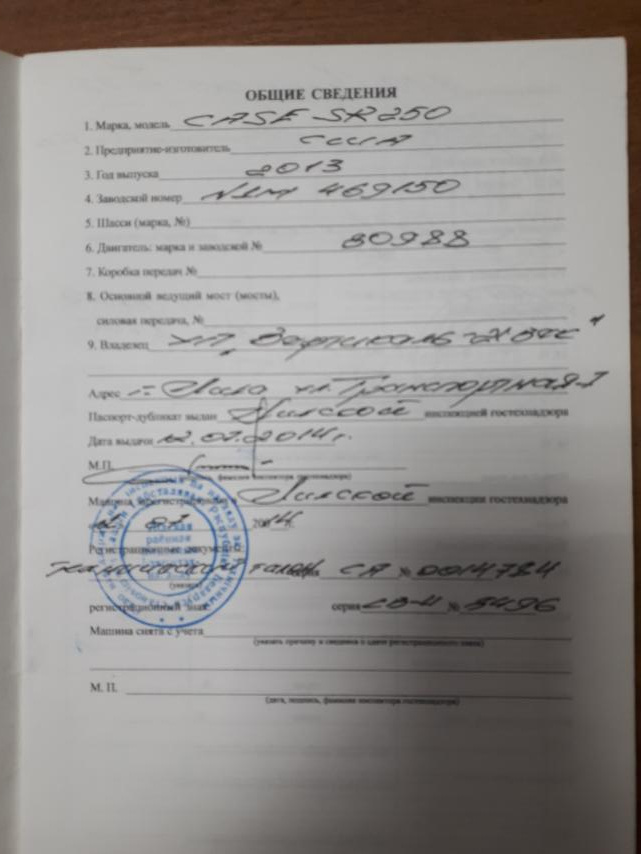 ОБЩИЕ СВЕДЕНИЯ
1. Марка, модель CASE SR 250
2. Предприятие-изготовитель США
3. Год выпуска 2013
4. Заводской номер NDM 469150
5. Шасси (марка, №)
6. Двигатель: марка и заводской № 80988
7. Коробка передач №
8. Основной ведущий мост (мосты),
силовая передача, №
9. Владелец
Адрес г. Лида ул. Транспортная
Паспорт-дубликат выдан Лидской инспекцией гостехнадзора
Дата выдачи 12.07.2014 г.
М.П.
(фамилия инспектора гостехнадзора)
Машина зарегистрирована Лидской инспекции гостехнадзора
200 14 г.
Регистрационные документы:
технический талон серия СА № 0014784
(указать)
регистрационный знак серия № 8496
Машина снята с учета
(указать причину и сведения о сдаче регистрационного знака)
М. П.
(дата, подпись, фамилия инспектора гостехнадзора)